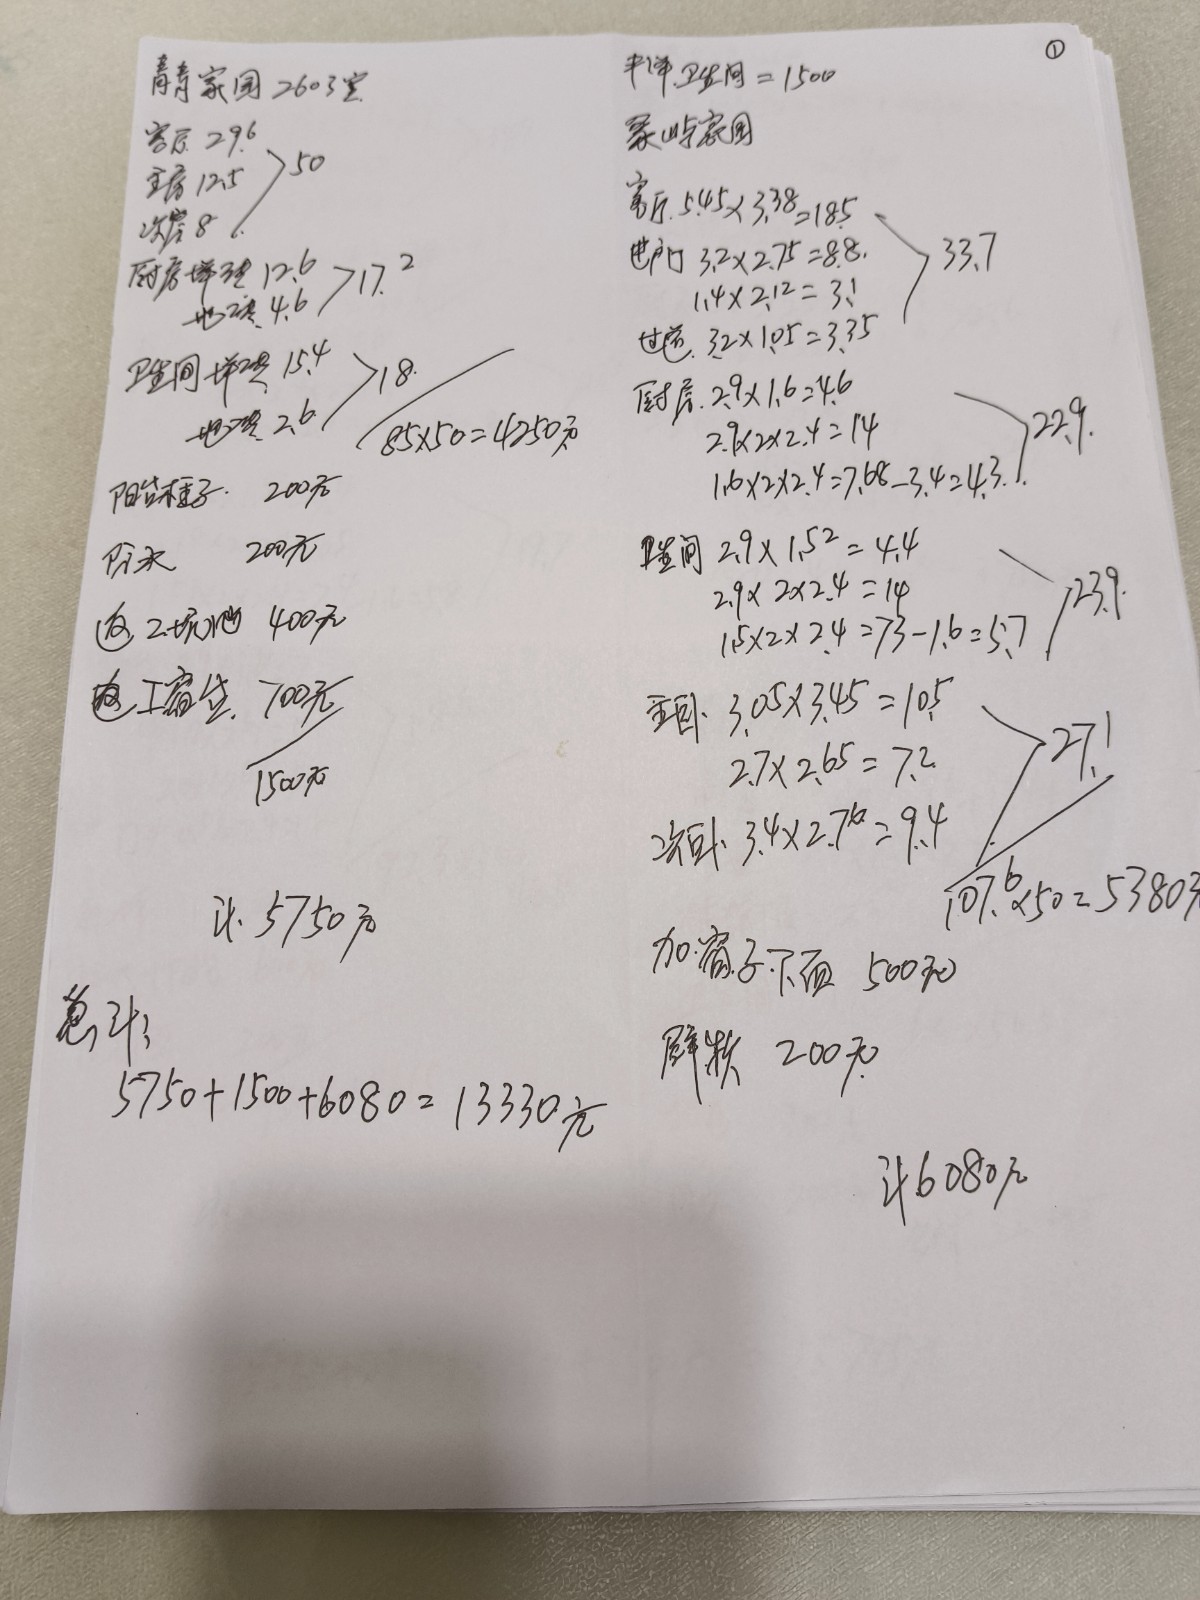 青青家园2603室
客厅 29.6
主房 12.5
次房 8
50
厨房墙砖 12.6
地砖 4.6
17.2
卫生间墙砖 15.4
地砖 2.6
18
85×50=4250元
阳台柜子 200元
防水 200元
200元
400元
700元
1500元
计 5750元
总计:
5750+1500+6080=13330元
①
卫生间=1500
象屿家园
客厅 5.45×3.38=18.5
进门 3.2×2.75=8.8
1.4×2.12=3.1
过道 3.2×1.05=3.35
33.7
厨房 2.9×1.6=4.6
2.9×2×2.4=14
1.6×2×2.4=7.68-3.4=4.3
22.9
卫生间 2.9×1.52=4.4
2.9×2×2.4=14
1.5×2×2.4=7.3-1.6=5.7
23.9
主卧 3.05×3.45=10.5
2.7×2.65=7.2
次卧 3.4×2.76=9.4
27.1
107.6×50=5380元
加窗子下面 500元
200元
计6080元